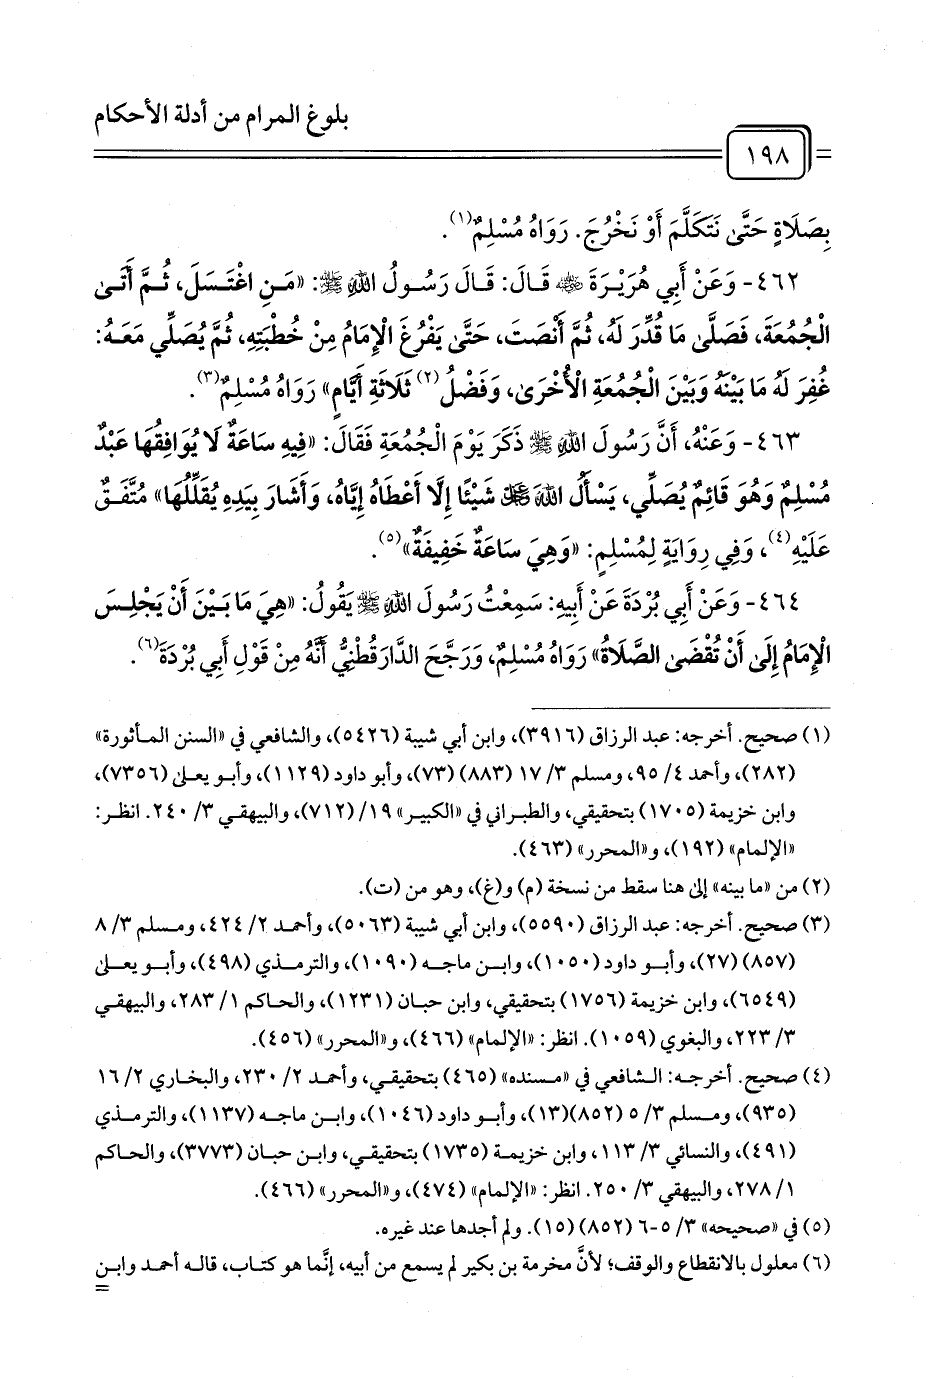 بلوغ المرام من أدلة الأحكام
١٩٨
بِصَلَاةٍ حَتَّى نَتَكَلَّمَ أَوْ نَخْرُجَ. رَوَاهُ مُسْلِمٌ(١).
٤٦٢- وَعَنْ أَبِي هُرَيْرَةَ ﵁ قَالَ: قَالَ رَسُولُ اللهِ ﷺ: «مَنِ اغْتَسَلَ، ثُمَّ أَتَى
الْجُمُعَةَ، فَصَلَّى مَا قُدِّرَ لَهُ، ثُمَّ أَنْصَتَ، حَتَّى يَفْرُغَ الْإِمَامُ مِنْ خُطْبَتِهِ، ثُمَّ يُصَلِّي مَعَهُ:
غُفِرَ لَهُ مَا بَيْنَهُ وَبَيْنَ الْجُمُعَةِ الْأُخْرَى، وَفَضْلُ(٢) ثَلَاثَةِ أَيَّامٍ» رَوَاهُ مُسْلِمٌ(٣).
٤٦٣- وَعَنْهُ، أَنَّ رَسُولَ اللهِ ﷺ ذَكَرَ يَوْمَ الْجُمُعَةِ فَقَالَ: «فِيهِ سَاعَةٌ لَا يُوَافِقُهَا عَبْدٌ
مُسْلِمٌ وَهُوَ قَائِمٌ يُصَلِّي، يَسْأَلُ اللهَ ﷿ شَيْئًا إِلَّا أَعْطَاهُ إِيَّاهُ، وَأَشَارَ بِيَدِهِ يُقَلِّلُهَا» مُتَّفَقٌ
عَلَيْهِ(٤)، وَفِي رِوَايَةٍ لِمُسْلِمٍ: «وَهِيَ سَاعَةٌ خَفِيفَةٌ»(٥).
٤٦٤- وَعَنْ أَبِي بُرْدَةَ عَنْ أَبِيهِ: سَمِعْتُ رَسُولَ اللهِ ﷺ يَقُولُ: «هِيَ مَا بَيْنَ أَنْ يَجْلِسَ
الْإِمَامُ إِلَى أَنْ تُقْضَى الصَّلَاةُ» رَوَاهُ مُسْلِمٌ، وَرَجَّحَ الدَّارَقُطْنِيُّ أَنَّهُ مِنْ قَوْلِ أَبِي بُرْدَةَ(٦).
(١) صحيح. أخرجه: عبد الرزاق (٣٩١٦)، وابن أبي شيبة (٥٤٢٦)، والشافعي في «السنن المأثورة»
(٢٨٢)، وأحمد ٤/ ٩٥، ومسلم ٣/ ١٧ (٨٨٣) (٧٣)، وأبو داود (١١٢٩)، وأبو يعلى (٧٣٥٦)،
وابن خزيمة (١٧٠٥) بتحقيقي، والطبراني في «الكبير» ١٩/ (٧١٢)، والبيهقي ٣/ ٢٤٠. انظر:
«الإلمام» (١٩٢)، و«المحرر» (٤٦٣).
(٢) من «ما بينه» إلى هنا سقط من نسخة (م) و(غ)، وهو من (ت).
(٣) صحيح. أخرجه: عبد الرزاق (٥٥٩٠)، وابن أبي شيبة (٥٠٦٣)، وأحمد ٢/ ٤٢٤، ومسلم ٣/ ٨
(٨٥٧) (٢٧)، وأبو داود (١٠٥٠)، وابن ماجه (١٠٩٠)، والترمذي (٤٩٨)، وأبو يعلى
(٦٥٤٩)، وابن خزيمة (١٧٥٦) بتحقيقي، وابن حبان (١٢٣١)، والحاكم ١/ ٢٨٣، والبيهقي
٣/ ٢٢٣، والبغوي (١٠٥٩). انظر: «الإلمام» (٤٦٦)، و«المحرر» (٤٥٦).
(٤) صحيح. أخرجه: الشافعي في «مسنده» (٤٦٥) بتحقيقي، وأحمد ٢/ ٢٣٠، والبخاري ٢/ ١٦
(٩٣٥)، ومسلم ٣/ ٥ (٨٥٢)(١٣)، وأبو داود (١٠٤٦)، وابن ماجه (١١٣٧)، والترمذي
(٤٩١)، والنسائي ٣/ ١١٣، وابن خزيمة (١٧٣٥) بتحقيقي، وابن حبان (٣٧٧٣)، والحاكم
١/ ٢٧٨، والبيهقي ٣/ ٢٥٠. انظر: «الإلمام» (٤٧٤)، و«المحرر» (٤٦٦).
(٥) في «صحيحه» ٣/ ٥-٦ (٨٥٢) (١٥). ولم أجدها عند غيره.
(٦) معلول بالانقطاع والوقف؛ لأنَّ مخرمة بن بكير لم يسمع من أبيه، إنَّما هو كتاب، قاله أحمد وابن
=